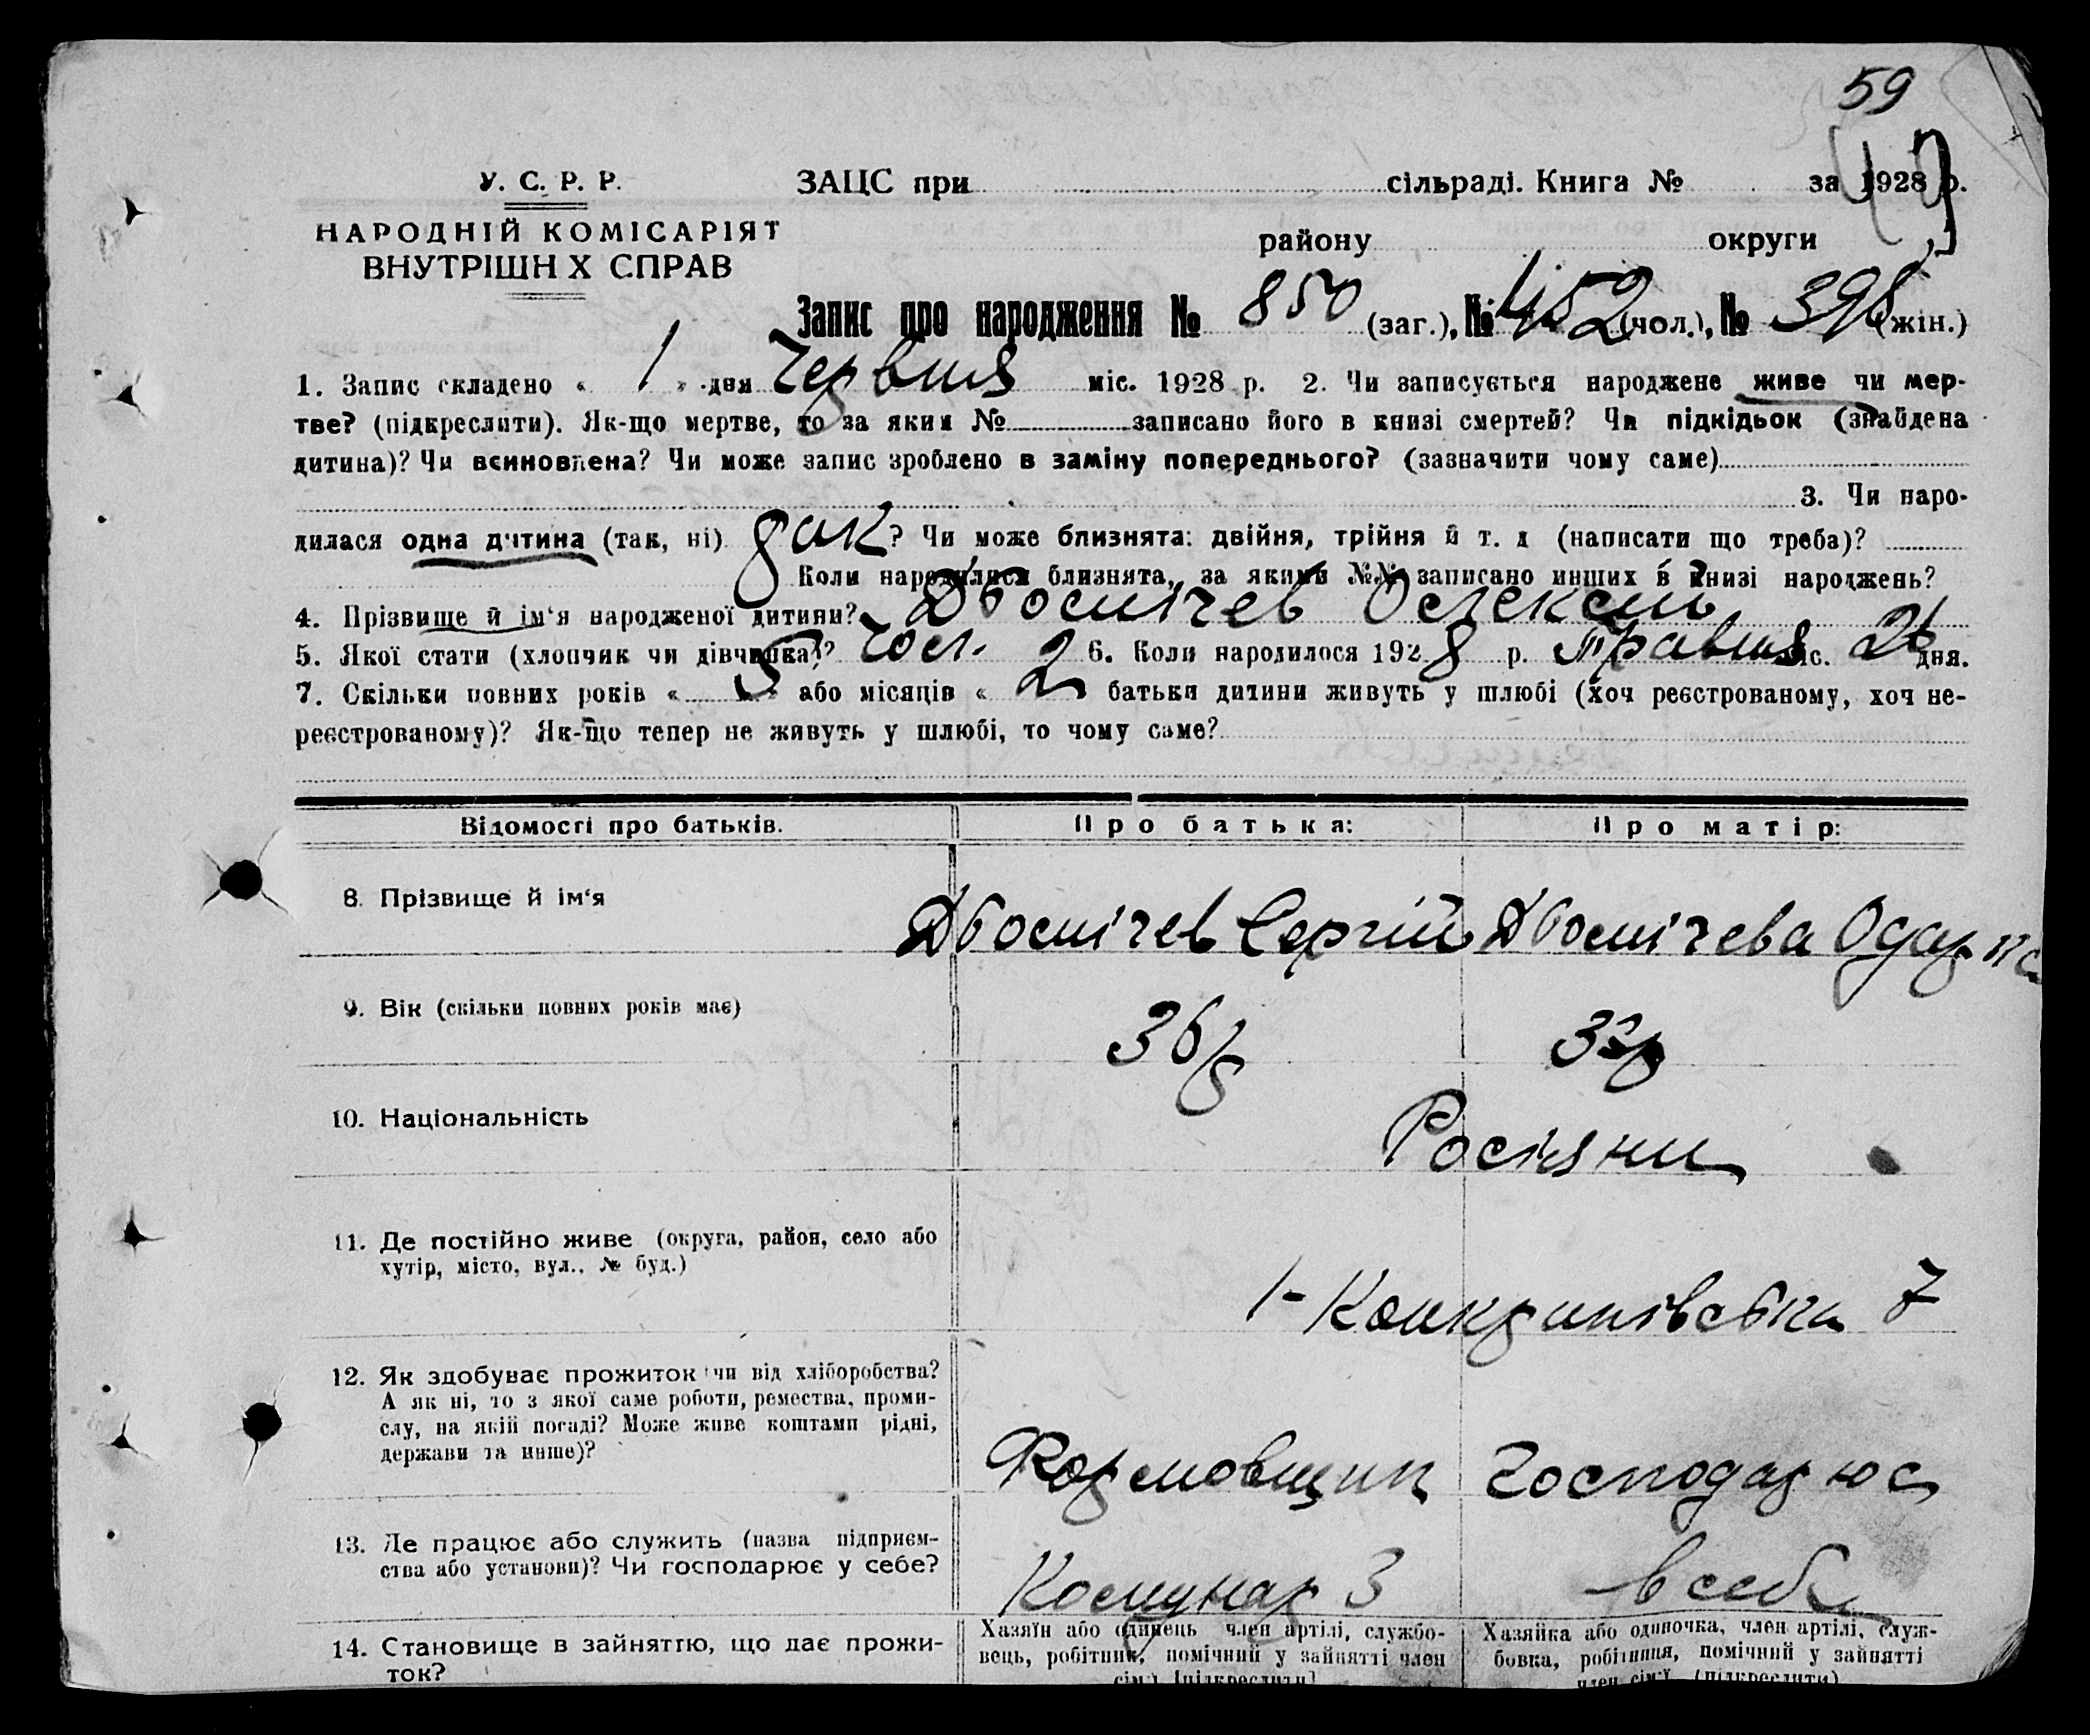 59
У. С. Р. Р.
НАРОДНІЙ КОМІСАРІЯТ
ВНУТРІШН Х СПРАВ
ЗАЦС при сільраді. Книга № за 1928 р.
району округи
Запис про народження № 850 (заг.), № 452 (чол.), № 398 (жін.)
1. Запис складено « 1 » дня Червня міс. 1928 р. 2. Чи записується народжене живе чи мер-
тве? (підкреслити). Як-що мертве, то за яким № записано його в книзі смертей? Чи підкідьок (знайдена
дитина)? Чи всиновлена? Чи може запис зроблено в заміну попереднього? (зазначити чому саме)
3. Чи наро-
дилася одна дитина (так, ні) так ? Чи може близнята: двійня, трійня й т. д (написати що треба)?
Коли народилися близнята, за якими №№ записано инших в книзі народжень?
4. Прізвище й ім'я народженої дитини? Олексій
5. Якої стати (хлопчик чи дівчинка)? Чол. 6. Коли народилося 1928 р. Травня міс. 26 дня.
7. Скільки повних років « 5 » або місяців « 2 батьки дитини живуть у шлюбі (хоч реєстрованому, хоч не-
реєстрованому)? Як-що тепер не живуть у шлюбі, то чому саме?
Відомості про батьків. Про батька: Про матір:
8. Прізвище й ім'я Сергій Одарка
9. Вік (скільки повних років має) 36 р
10. Національність Росіяни
11. Де постійно живе (округа, район, село або
хутір, місто, вул., № буд.) 7
12. Як здобуває прожиток чи від хліборобства?
А як ні, то з якої саме роботи, ремества, проми-
слу, на якій посаді? Може живе коштами рідні,
держави та инше)? Формовщик Господарює
13. Де працює або служить (назва підприєм-
ства або установи)? Чи господарює у себе? Комунар 3 в себе
14. Становище в зайняттю, що дає прожи-
ток?
Хазяїн або одинець член артілі, службо-
вець, робітник, помічний у зайнятті член
сім'ї (підкреслити)
Хазяйка або одиночка, член артілі, служ-
бовка, робітниця, помічний у зайнятті
член сім'ї (підкреслити)